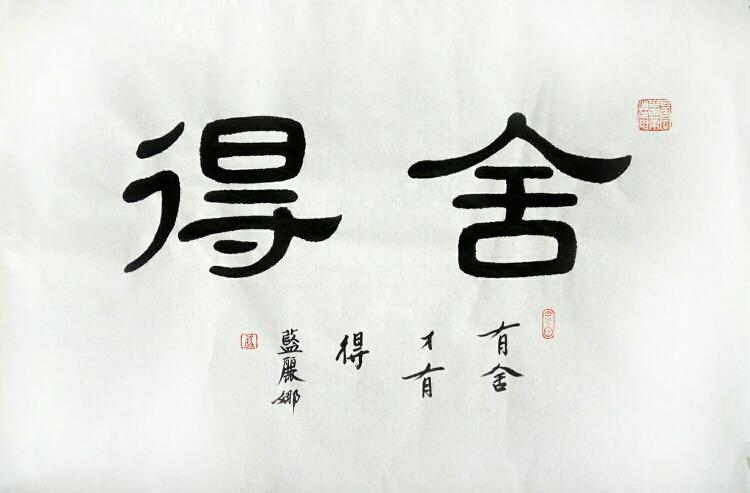 舍得
有舍
才有
得
藍麗娜